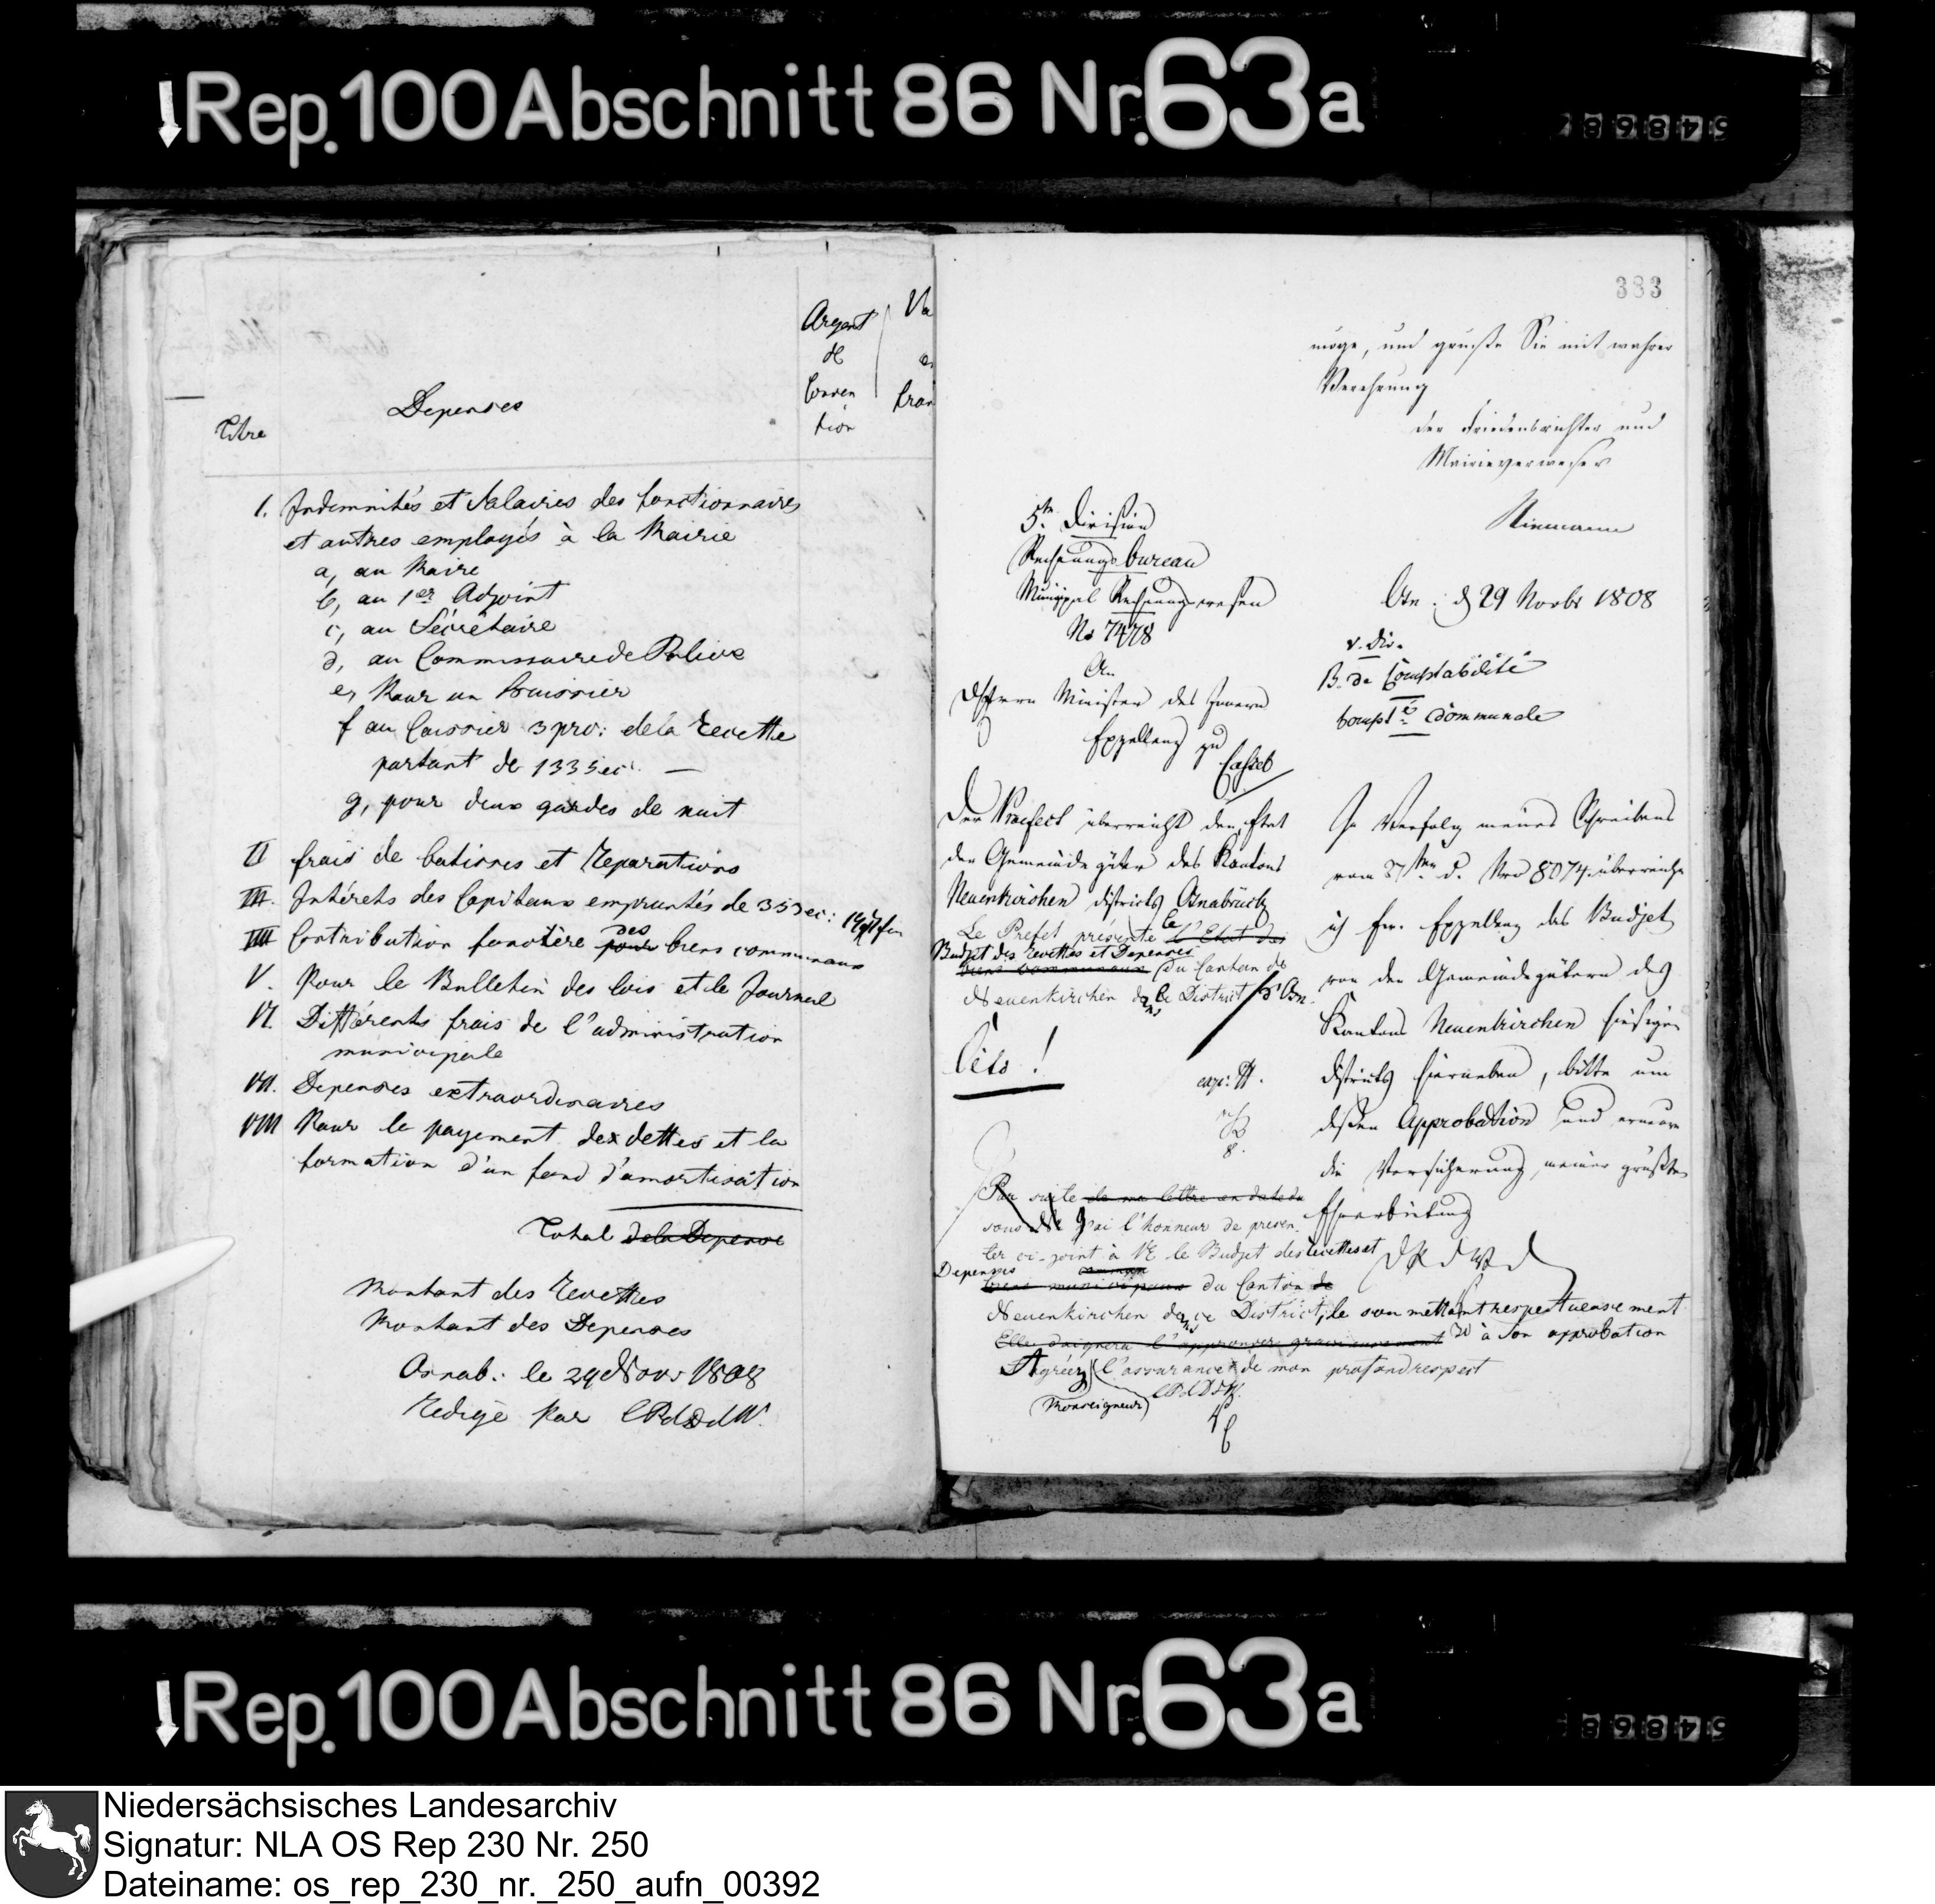 Rep. 100 Abschnitt 86 Nr. 63a
548687
Titre
Depenses
Argent
de
Conven
tion
Va
Fran
I. Indemnités et Salaires des fonctionnaires
et autres employés à la Mairie
a, au Maire
b, au 1er Adjoint
c, au Sécrétaire
d, au Commissaire de Police
e, Pour un huissier
f au Caissier 3 pro: de la Recette
partant de 1335 ec: —
g, pour deux gardes de nuit
II frais de batisses et Reparations
III. Intérets des Capitaux empruntés de 353 ec:
IIII Contribution foncière pour des biens communaux
V. Pour le Bulletin des lois et le Journal
VI. Différents frais de l'administration
municipale
VII. Depenses extraordinaires
VIII Pour le payement des dettes et la
formation d'un fond d'amortisation
Total de la Depense
Montant des Recettes
Montant des Depenses
Osnab: le 29 Novr 1808
Redigé par LPdDdW.
383
möge, und grüße Sie mit wahrer
Verehrung
der Friedensrichter und
Mairieverweser
Niemann
5te Division
Rechnungsbureau
Municipal Rechnungswesen
No 7478
An
Herrn Minister des Innern
Excellenz zu
Cassel
Der Praefect überreicht den Etat
der Gemeindegüter des Kantons
Neuenkirchen districts Osnabrück
Le Prefet présente le l'Etat des
Budget des Recettes et Depenses
biens communaux du Canton de
Neuenkirchen dans le District d'Osn.
Cito!
exp:
Par suite de ma lettre en date du
j'ai l'honneur de presen
ter ci-joint à VE le Budget des Recettes et
Depenses
biens municipaux du Canton de
Neuenkirchen dans ce District, le soumettant respectueusement
Elle daignera l'approuver gracieusement à Son approbation
Agréez l'assurance de mon profond respect
Monseigneur
LPdDdW.
Osn: d 29 Novbr 1808
V. Div.
B. de Comptabilité
Compté Communale
In Verfolg meines Schreibens
vom 27ten d. Nro 8074. überreiche
ich Ew. Excellenz das Budjet
von den Gemeindegütern des
Kantons Neuenkirchen hiesigen
districts hierneben, bitte um
dessen Approbation und
die Versicherung meiner größten
Ehrerbietung
DPdWD
Rep. 100 Abschnitt 86 Nr. 63a
548687
Niedersächsisches Landesarchiv
Signatur: NLA OS Rep 230 Nr. 250
Dateiname: os_rep_230_nr._250_aufn_00392